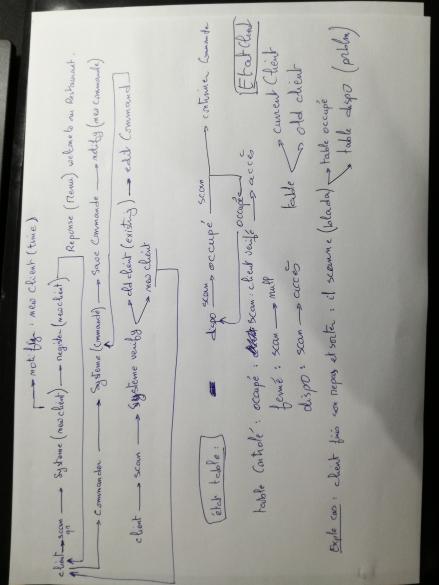 notify : new client (time)
client → scan qr → Système (new client) → register (new client)
Reponse (Menu) welcome to our Restaurant.
→ Commander → Système (Commande) → Save Commande → notify (new commande)
client → scan → Système verify → old client (existing) → edit Command
→ new client
état table :
dispo scan → occupé scan → continuer Commande
occupée
table Contrôlé : occupé : scan : client verifié → accès
Etat Client
fermé : scan → null
dispo : scan → accès
table → current Client
→ old client
Exple cas : client finis son repas et sorter : il scanne (blada) → table occupé
→ table dispo (prblm)